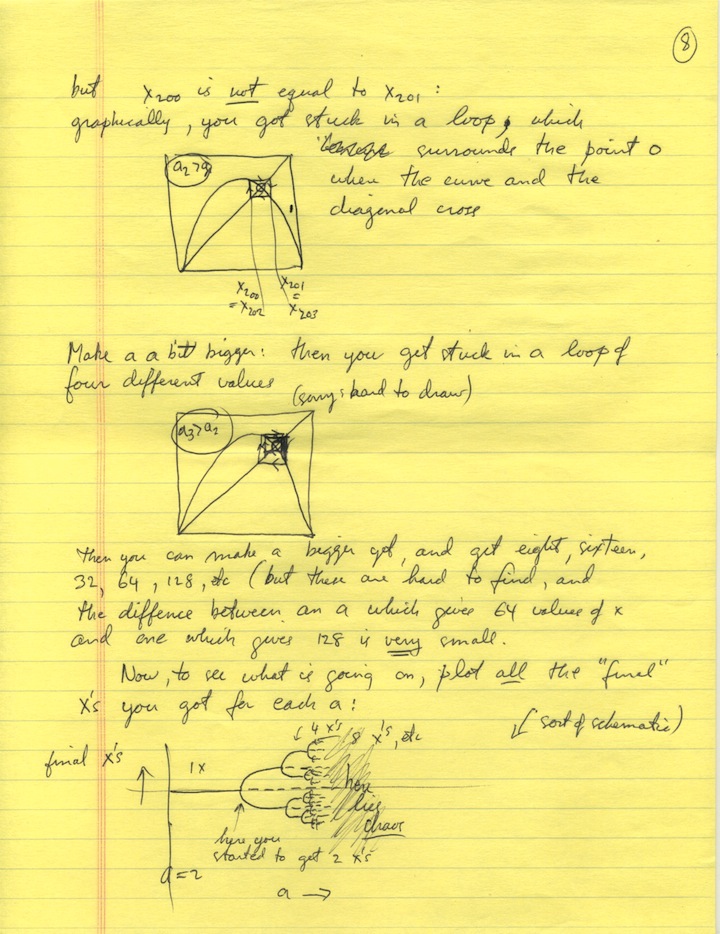 8
but x200 is not equal to x201 :
graphically, you got stuck in a loop, which
surrounds the point
when the curve and the
diagonal cross
a2 > a1
x200 = x202
x201 = x203
Make a a bit bigger: then you get stuck in a loop of
four different values (sorry: hard to draw)
a3 > a2
Then you can make a bigger yet, and get eight, sixteen,
32, 64, 128, etc (but these are hard to find, and
the diffence between an a which gives 64 values of x
and one which gives 128 is very small.
Now, to see what is going on, plot all the "final"
x's you got for each a:
(sort of schematic)
4 x's
8 x's, etc
final x's
1x
here lies chaos
here you
started to get 2 x's
a=2
a →